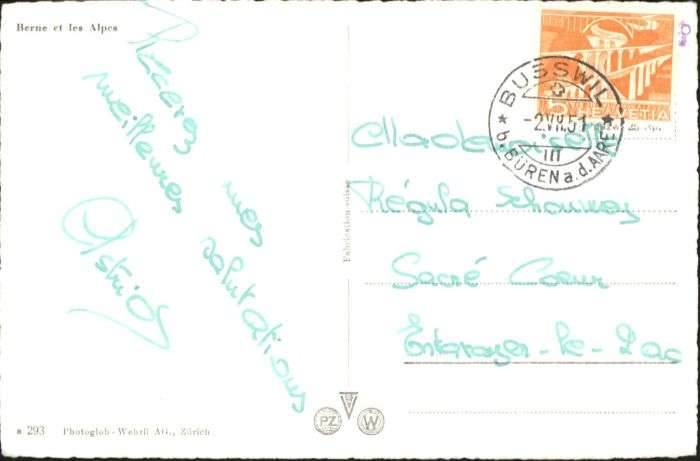 Berne et les Alpes
Recevez mes
meilleures salutations
Astrid
Fabrication suisse
HELVETIA
5
BUSSWIL
-2.VII.51
III
b. BÜREN a.d. AARE
Mademoiselle
Régula Schouwey
Sacré Coeur
Estavayer-le-Lac
PZ
W
293 Photoglob-Wehrli AG., Zürich